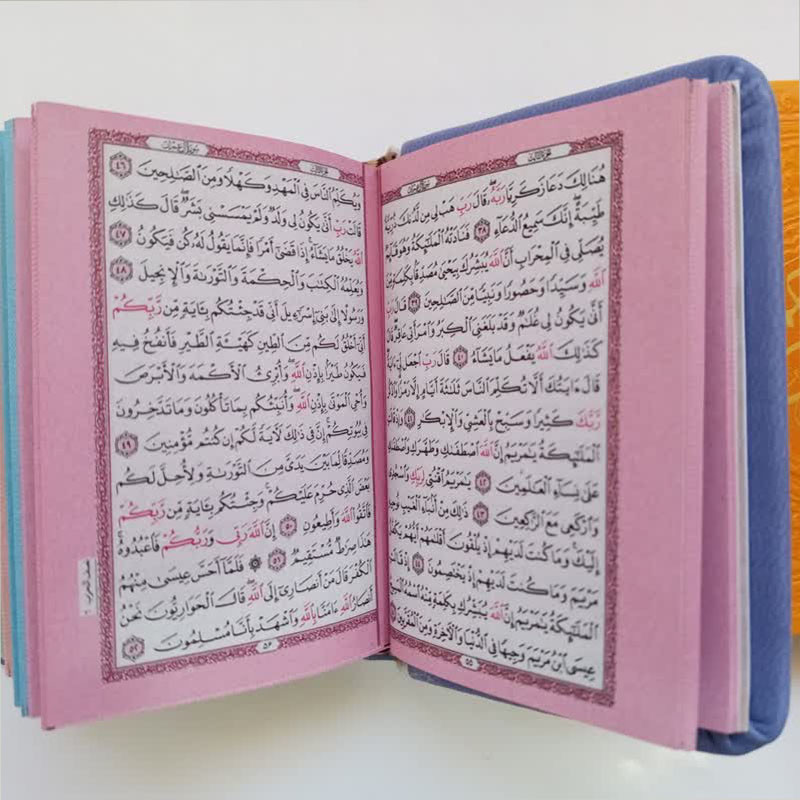 الجزء الثالث
سورة آل عمران
هُنَالِكَ دَعَا زَكَرِيَّا رَبَّهُۥۖ قَالَ رَبِّ هَبْ لِى مِن لَّدُنكَ ذُرِّيَّةً
طَيِّبَةًۖ إِنَّكَ سَمِيعُ الدُّعَآءِ ٣٨ فَنَادَتْهُ الْمَلَٰٓئِكَةُ وَهُوَ قَآئِمٌ
يُصَلِّى فِى الْمِحْرَابِ أَنَّ اللَّهَ يُبَشِّرُكَ بِيَحْيَىٰ مُصَدِّقًۢا بِكَلِمَةٍ مِّنَ
اللَّهِ وَسَيِّدًا وَحَصُورًا وَنَبِيًّا مِّنَ الصَّٰلِحِينَ ٣٩ قَالَ رَبِّ
أَنَّىٰ يَكُونُ لِى غُلَٰمٌ وَقَدْ بَلَغَنِىَ الْكِبَرُ وَامْرَأَتِى عَاقِرٌۖ قَالَ
كَذَٰلِكَ اللَّهُ يَفْعَلُ مَا يَشَآءُ ٤٠ قَالَ رَبِّ اجْعَل لِّىٓ ءَايَةًۖ
قَالَ ءَايَتُكَ أَلَّا تُكَلِّمَ النَّاسَ ثَلَٰثَةَ أَيَّامٍ إِلَّا رَمْزًاۗ وَاذْكُر
رَّبَّكَ كَثِيرًا وَسَبِّحْ بِالْعَشِىِّ وَالْإِبْكَٰرِ ٤١ وَإِذْ قَالَتِ
الْمَلَٰٓئِكَةُ يَٰمَرْيَمُ إِنَّ اللَّهَ اصْطَفَىٰكِ وَطَهَّرَكِ وَاصْطَفَىٰكِ
عَلَىٰ نِسَآءِ الْعَٰلَمِينَ ٤٢ يَٰمَرْيَمُ اقْنُتِى لِرَبِّكِ وَاسْجُدِى
وَارْكَعِى مَعَ الرَّٰكِعِينَ ٤٣ ذَٰلِكَ مِنْ أَنۢبَآءِ الْغَيْبِ نُوحِيهِ
إِلَيْكَۚ وَمَا كُنتَ لَدَيْهِمْ إِذْ يُلْقُونَ أَقْلَٰمَهُمْ أَيُّهُمْ يَكْفُلُ
مَرْيَمَ وَمَا كُنتَ لَدَيْهِمْ إِذْ يَخْتَصِمُونَ ٤٤ إِذْ قَالَتِ
الْمَلَٰٓئِكَةُ يَٰمَرْيَمُ إِنَّ اللَّهَ يُبَشِّرُكِ بِكَلِمَةٍ مِّنْهُ اسْمُهُ الْمَسِيحُ
عِيسَى ابْنُ مَرْيَمَ وَجِيهًا فِى الدُّنْيَا وَالْآخِرَةِ وَمِنَ الْمُقَرَّبِينَ
٥٥
الجزء الثالث
سورة آل عمران
وَيُكَلِّمُ النَّاسَ فِى الْمَهْدِ وَكَهْلًا وَمِنَ الصَّٰلِحِينَ ٤٦
قَالَتْ رَبِّ أَنَّىٰ يَكُونُ لِى وَلَدٌ وَلَمْ يَمْسَسْنِى بَشَرٌۖ قَالَ كَذَٰلِكِ
اللَّهُ يَخْلُقُ مَا يَشَآءُۚ إِذَا قَضَىٰٓ أَمْرًا فَإِنَّمَا يَقُولُ لَهُۥ كُن فَيَكُونُ ٤٧
وَيُعَلِّمُهُ الْكِتَٰبَ وَالْحِكْمَةَ وَالتَّوْرَىٰةَ وَالْإِنجِيلَ ٤٨
وَرَسُولًا إِلَىٰ بَنِىٓ إِسْرَٰٓءِيلَ أَنِّى قَدْ جِئْتُكُم بِـَٔايَةٍ مِّن رَّبِّكُمْۖ
أَنِّىٓ أَخْلُقُ لَكُم مِّنَ الطِّينِ كَهَيْـَٔةِ الطَّيْرِ فَأَنفُخُ فِيهِ
فَيَكُونُ طَيْرًۢا بِإِذْنِ اللَّهِۖ وَأُبْرِئُ الْأَكْمَهَ وَالْأَبْرَصَ
وَأُحْىِ الْمَوْتَىٰ بِإِذْنِ اللَّهِۖ وَأُنَبِّئُكُم بِمَا تَأْكُلُونَ وَمَا تَدَّخِرُونَ
فِى بُيُوتِكُمْۚ إِنَّ فِى ذَٰلِكَ لَآيَةً لَّكُمْ إِن كُنتُم مُّؤْمِنِينَ ٤٩
وَمُصَدِّقًا لِّمَا بَيْنَ يَدَىَّ مِنَ التَّوْرَىٰةِ وَلِأُحِلَّ لَكُم
بَعْضَ الَّذِى حُرِّمَ عَلَيْكُمْۚ وَجِئْتُكُم بِـَٔايَةٍ مِّن رَّبِّكُمْ
فَاتَّقُوا اللَّهَ وَأَطِيعُونِ ٥٠ إِنَّ اللَّهَ رَبِّى وَرَبُّكُمْ فَاعْبُدُوهُۗ
هَٰذَا صِرَٰطٌ مُّسْتَقِيمٌ ٥١ ۞ فَلَمَّآ أَحَسَّ عِيسَىٰ مِنْهُمُ
الْكُفْرَ قَالَ مَنْ أَنصَارِىٓ إِلَى اللَّهِۖ قَالَ الْحَوَارِيُّونَ نَحْنُ
أَنصَارُ اللَّهِ ءَامَنَّا بِاللَّهِ وَاشْهَدْ بِأَنَّا مُسْلِمُونَ ٥٢
نصف الحزب
٥٦